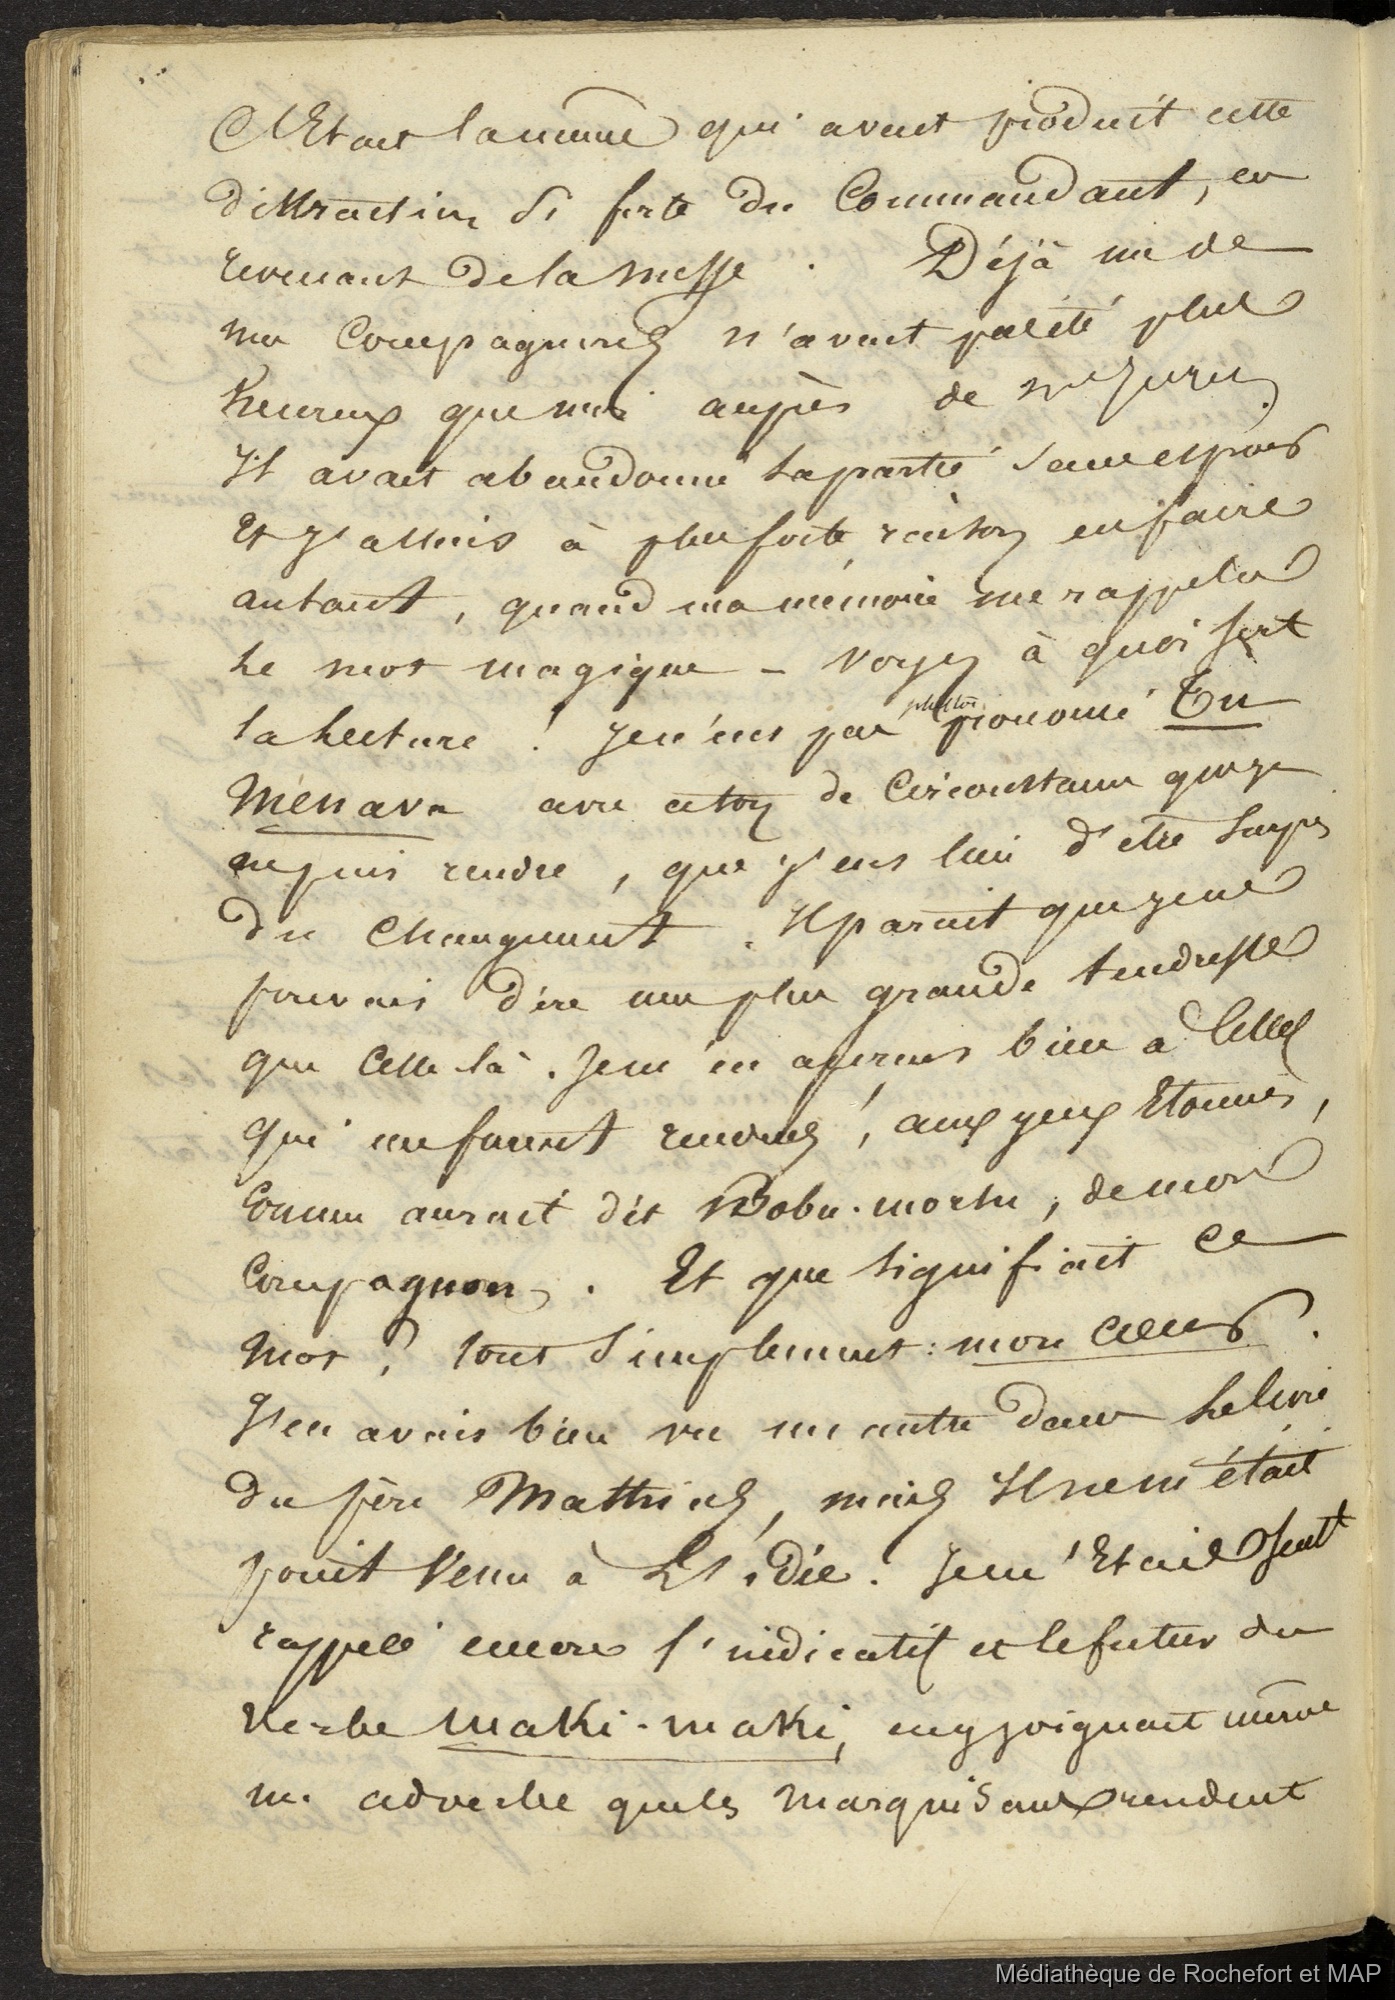 C'Etait la même qui avait produit cette
distraction si forte du Commandant, en
revenant de la messe. Déjà un de
mes Compagnons n'avait pas été plus
heureux que moi auprès de
Il avait abandonné la partie sans espoir
et j'allais à plus forte raison en faire
autant, quand ma mémoire me rappela
le mot magique - voyez à quoi sert
la lecture ! Je n'eus pas plutôt prononcé Tu
Menava avec ce ton de Circonstance que je
ne puis rendre, que j'eus lieu d'être surpris
du changement. Il parait que je ne
pouvais dire une plus grande tendresse
que celle là. Je m'en aperçus bien à celles
qui me furent rendues, aux yeux Etonnés,
Comme aurait dit Bobu-mortu, de mon
Compagnon. Et que signifiait ce
mot ? tout simplement : mon cœur.
J'en avais bien vu un autre dans le livre
du père Mathias, mais Il ne m'était
point venu à L'idée. Je m'Etais seult
rappelé encore l'indicatif et le futur du
verbe maki-maki, en y joignant même
un adverbe que les marquisans rendent
Médiathèque de Rochefort et MAP